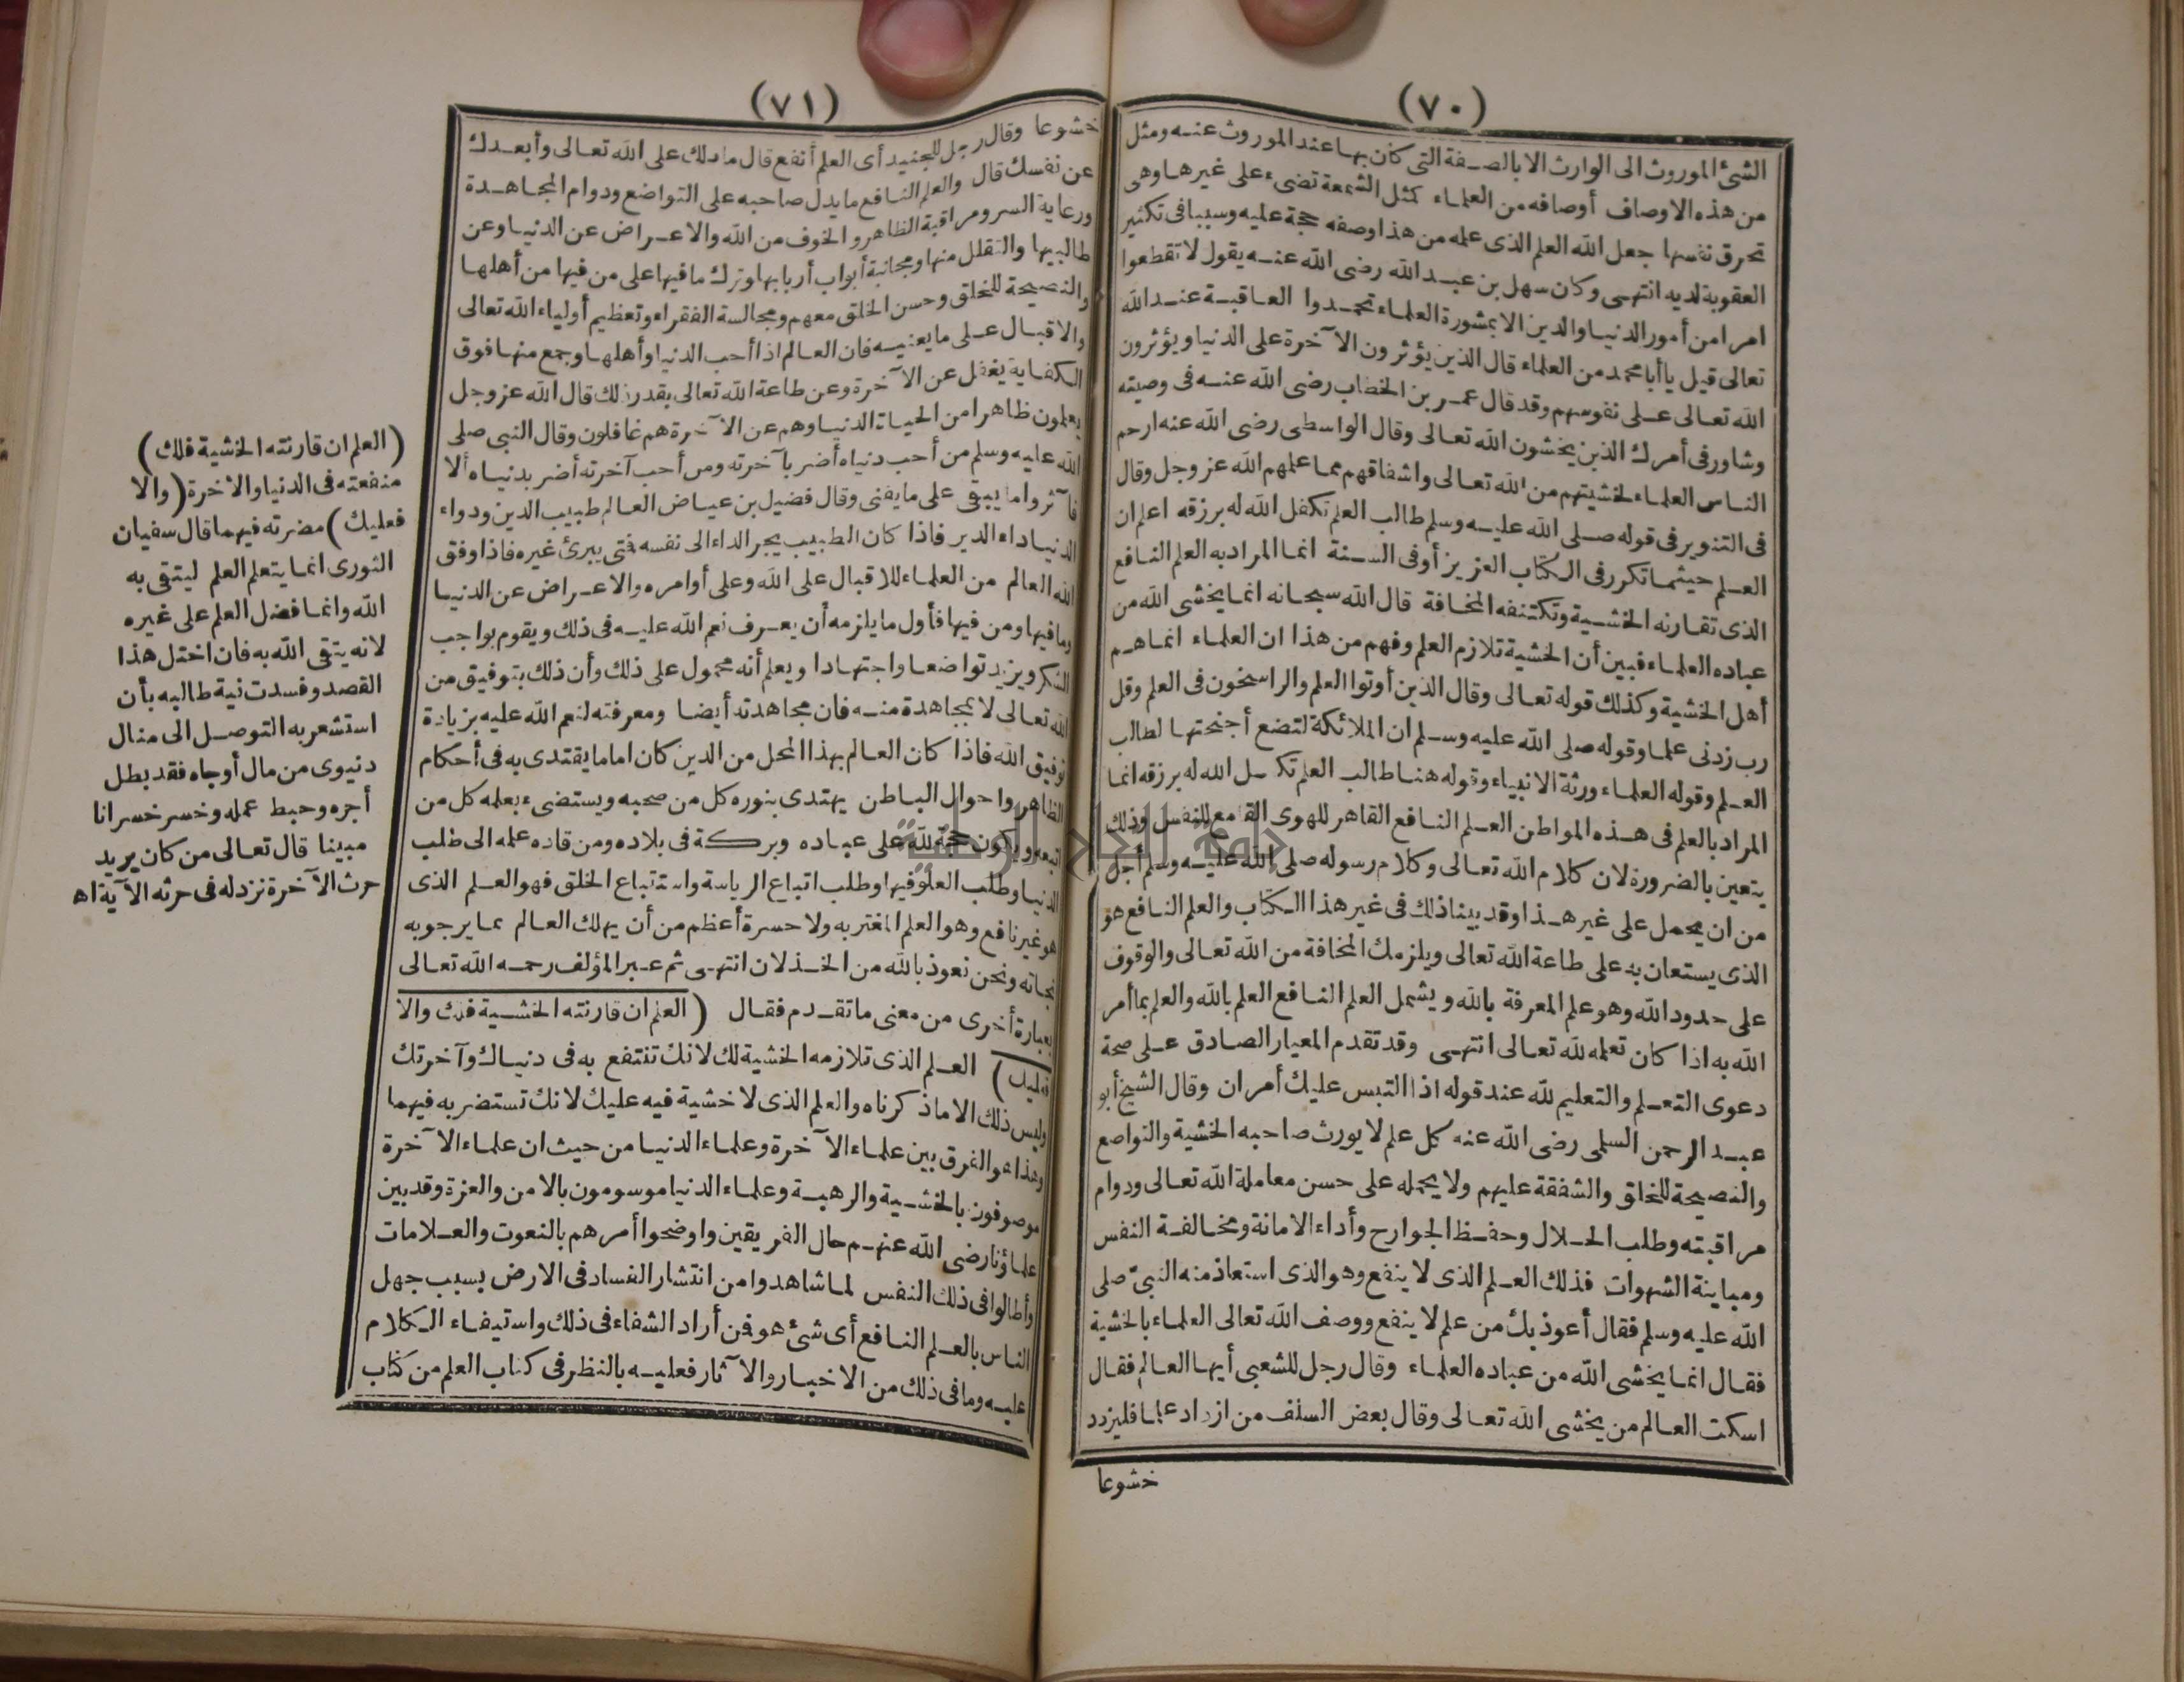 (٧٠)
الشئ الموروث الى الوارث الا بالصفة التى كان بها عند الموروث عنه ومثل
من هذه الاوصاف أوصافه من العلماء كمثل الشمعة تضىء على غيرها وهى
تحرق نفسها جعل الله العلم الذى علمه من هذا وصفه حجة عليه وسببا فى تكثير
العقوبة لديه انتهى وكان سهل بن عبد الله رضى الله عنه يقول لا تقطعوا
امرا من أمور الدنيا والدين الا بمشورة العلماء تحمدوا العاقبة عند الله
تعالى قيل يا أبا محمد من العلماء قال الذين يؤثرون الآخرة على الدنيا ويؤثرون
الله تعالى على نفوسهم وقد قال عمر بن الخطاب رضى الله عنه فى وصيته
وشاور فى أمرك الذين يخشون الله تعالى وقال الواسطى رضى الله عنه ارحم
الناس العلماء لخشيتهم من الله تعالى واشفاقهم مما علمهم الله عز وجل وقال
فى التنوير فى قوله صلى الله عليه وسلم طالب العلم تكفل الله له برزقه اعلم ان
العلم حيثما تكرر فى الكتاب العزيز أو فى السنة انما المراد به العلم النافع
الذى تقارنه الخشية وتكتنفه المخافة قال الله سبحانه انما يخشى الله من
عباده العلماء فبين أن الخشية تلازم العلم وفهم من هذا ان العلماء انما هم
أهل الخشية وكذلك قوله تعالى وقال الذين أوتوا العلم والراسخون فى العلم وقل
رب زدنى علما وقوله صلى الله عليه وسلم ان الملائكة لتضع أجنحتها لطالب
العلم وقوله العلماء ورثة الانبياء وقوله هنا طالب العلم تكفل الله له برزقه انما
المراد بالعلم فى هذه المواطن العلم النافع القاهر للهوى القامع للنفس وذلك
يتعين بالضرورة لان كلام الله تعالى وكلام رسوله صلى الله عليه وسلم أجل
من ان يحمل على غير هذا وقد بينا ذلك فى غير هذا الكتاب والعلم النافع هو
الذى يستعان به على طاعة الله تعالى ويلزمك المخافة من الله تعالى والوقوف
على حدود الله وهو علم المعرفة بالله ويشمل العلم النافع العلم بالله والعلم بما أمر
الله به اذا كان تعلمه لله تعالى انتهى وقد تقدم المعيار الصادق على صحة
دعوى التعلم والتعليم لله عند قوله اذا التبس عليك أمران وقال الشيخ أبو
عبد الرحمن السلمى رضى الله عنه كل علم لا يورث صاحبه الخشية والتواضع
والنصيحة للخلق والشفقة عليهم ولا يحمله على حسن معاملة الله تعالى ودوام
مراقبته وطلب الحلال وحفظ الجوارح وأداء الامانة ومخالفة النفس
ومباينة الشهوات فذلك العلم الذى لا ينفع وهو الذى استعاذ منه النبىّ صلى
الله عليه وسلم فقال أعوذ بك من علم لا ينفع ووصف الله تعالى العلماء بالخشية
فقال انما يخشى الله من عباده العلماء وقال رجل للشعبى أيها العالم فقال
اسكت العالم من يخشى الله تعالى وقال بعض السلف من ازداد علما فليزدد
خشوعا
(٧١)
خشوعا وقال رجل للجنيد أى العلم أنفع قال ما دلك على الله تعالى وأبعدك
عن نفسك قال والعلم النافع ما يدل صاحبه على التواضع ودوام المجاهدة
ورعاية السر ومراقبة الظاهر والخوف من الله والاعراض عن الدنيا وعن
طالبيها والتقلل منها ومجانبة أبواب أربابها وترك ما فيها على من فيها من أهلها
والنصيحة للخلق وحسن الخلق معهم ومجالسة الفقراء وتعظيم أولياء الله تعالى
والاقبال على ما يعنيه فان العالم اذا أحب الدنيا وأهلها وجمع منها فوق
الكفاية يغفل عن الآخرة وعن طاعة الله تعالى بقدر ذلك قال الله عز وجل
يعلمون ظاهرا من الحياة الدنيا وهم عن الآخرة هم غافلون وقال النبى صلى
الله عليه وسلم من أحب دنياه أضر بآخرته ومن أحب آخرته أضر بدنياه ألا
فآثروا ما يبقى على ما يفنى وقال فضيل بن عياض العالم طبيب الدين ودواء
الدنيا داء الدين فاذا كان الطبيب يجر الداء الى نفسه فتى يبرئ غيره فاذا وفق
الله العالم من العلماء للاقبال على الله وعلى أوامره والاعراض عن الدنيا
وما فيها ومن فيها فأول ما يلزمه أن يعرف نعم الله عليه فى ذلك ويقوم بواجب
الشكر ويزيد تواضعا واجتهادا ويعلم أنه محمول على ذلك وأن ذلك بتوفيق من
الله تعالى لا بمجاهدة منه فان مجاهدته أيضا ومعرفته لنعم الله عليه بزيادة
توفيق الله فاذا كان العالم بهذا المحل من الدين كان اماما يقتدى به فى أحكام
الظاهر واحوال الباطن يهتدى بنوره كل من صحبه ويستضىء بعلمه كل من
اتبعه ويكون حجة لله على عباده وبركة فى بلاده ومن قاده علمه الى طلب
الدنيا وطلب العلو فيها وطلب اتباع الرياسة واستتباع الخلق فهو العلم الذى
هو غير نافع وهو العلم المغتر به ولا حسرة أعظم من أن يهلك العالم بما يرجو به
نجاته ونحن نعوذ بالله من الخذلان انتهى ثم عبر المؤلف رحمه الله تعالى
بعبارة أخرى من معنى ما تقدم فقال (العلم ان قارنته الخشية فلك والا
فعليك) العلم الذى تلازمه الخشية لك لانك تنتفع به فى دنياك وآخرتك
وليس ذلك الا ما ذكرناه والعلم الذى لا خشية فيه عليك لانك تستضر به فيهما
وهذا هو الفرق بين علماء الآخرة وعلماء الدنيا من حيث ان علماء الآخرة
موصوفون بالخشية والرهبة وعلماء الدنيا موسومون بالامن والعزة وقد بين
علماؤنا رضى الله عنهم حال الفريقين واوضحوا أمرهم بالنعوت والعلامات
وأطالوا فى ذلك النفس لما شاهدوا من انتشار الفساد فى الارض بسبب جهل
الناس بالعلم النافع أى شئ هو فمن أراد الشفاء فى ذلك واستيفاء الكلام
عليه وما فى ذلك من الاخبار والآثار فعليه بالنظر فى كتاب العلم من كتاب
(العلم ان قارنته الخشية فلك)
منفعته فى الدنيا والآخرة (والا
فعليك) مضرته فيهما قال سفيان
الثورى انما يتعلم العلم ليتقى به
الله وانما فضل العلم على غيره
لانه يتقى الله به فان اختل هذا
القصد وفسدت نية طالبه بأن
استشعر به التوصل الى منال
دنيوى من مال أو جاه فقد بطل
أجره وحبط عمله وخسر خسرانا
مبينا قال تعالى من كان يريد
حرث الآخرة نزد له فى حرثه الآية اه